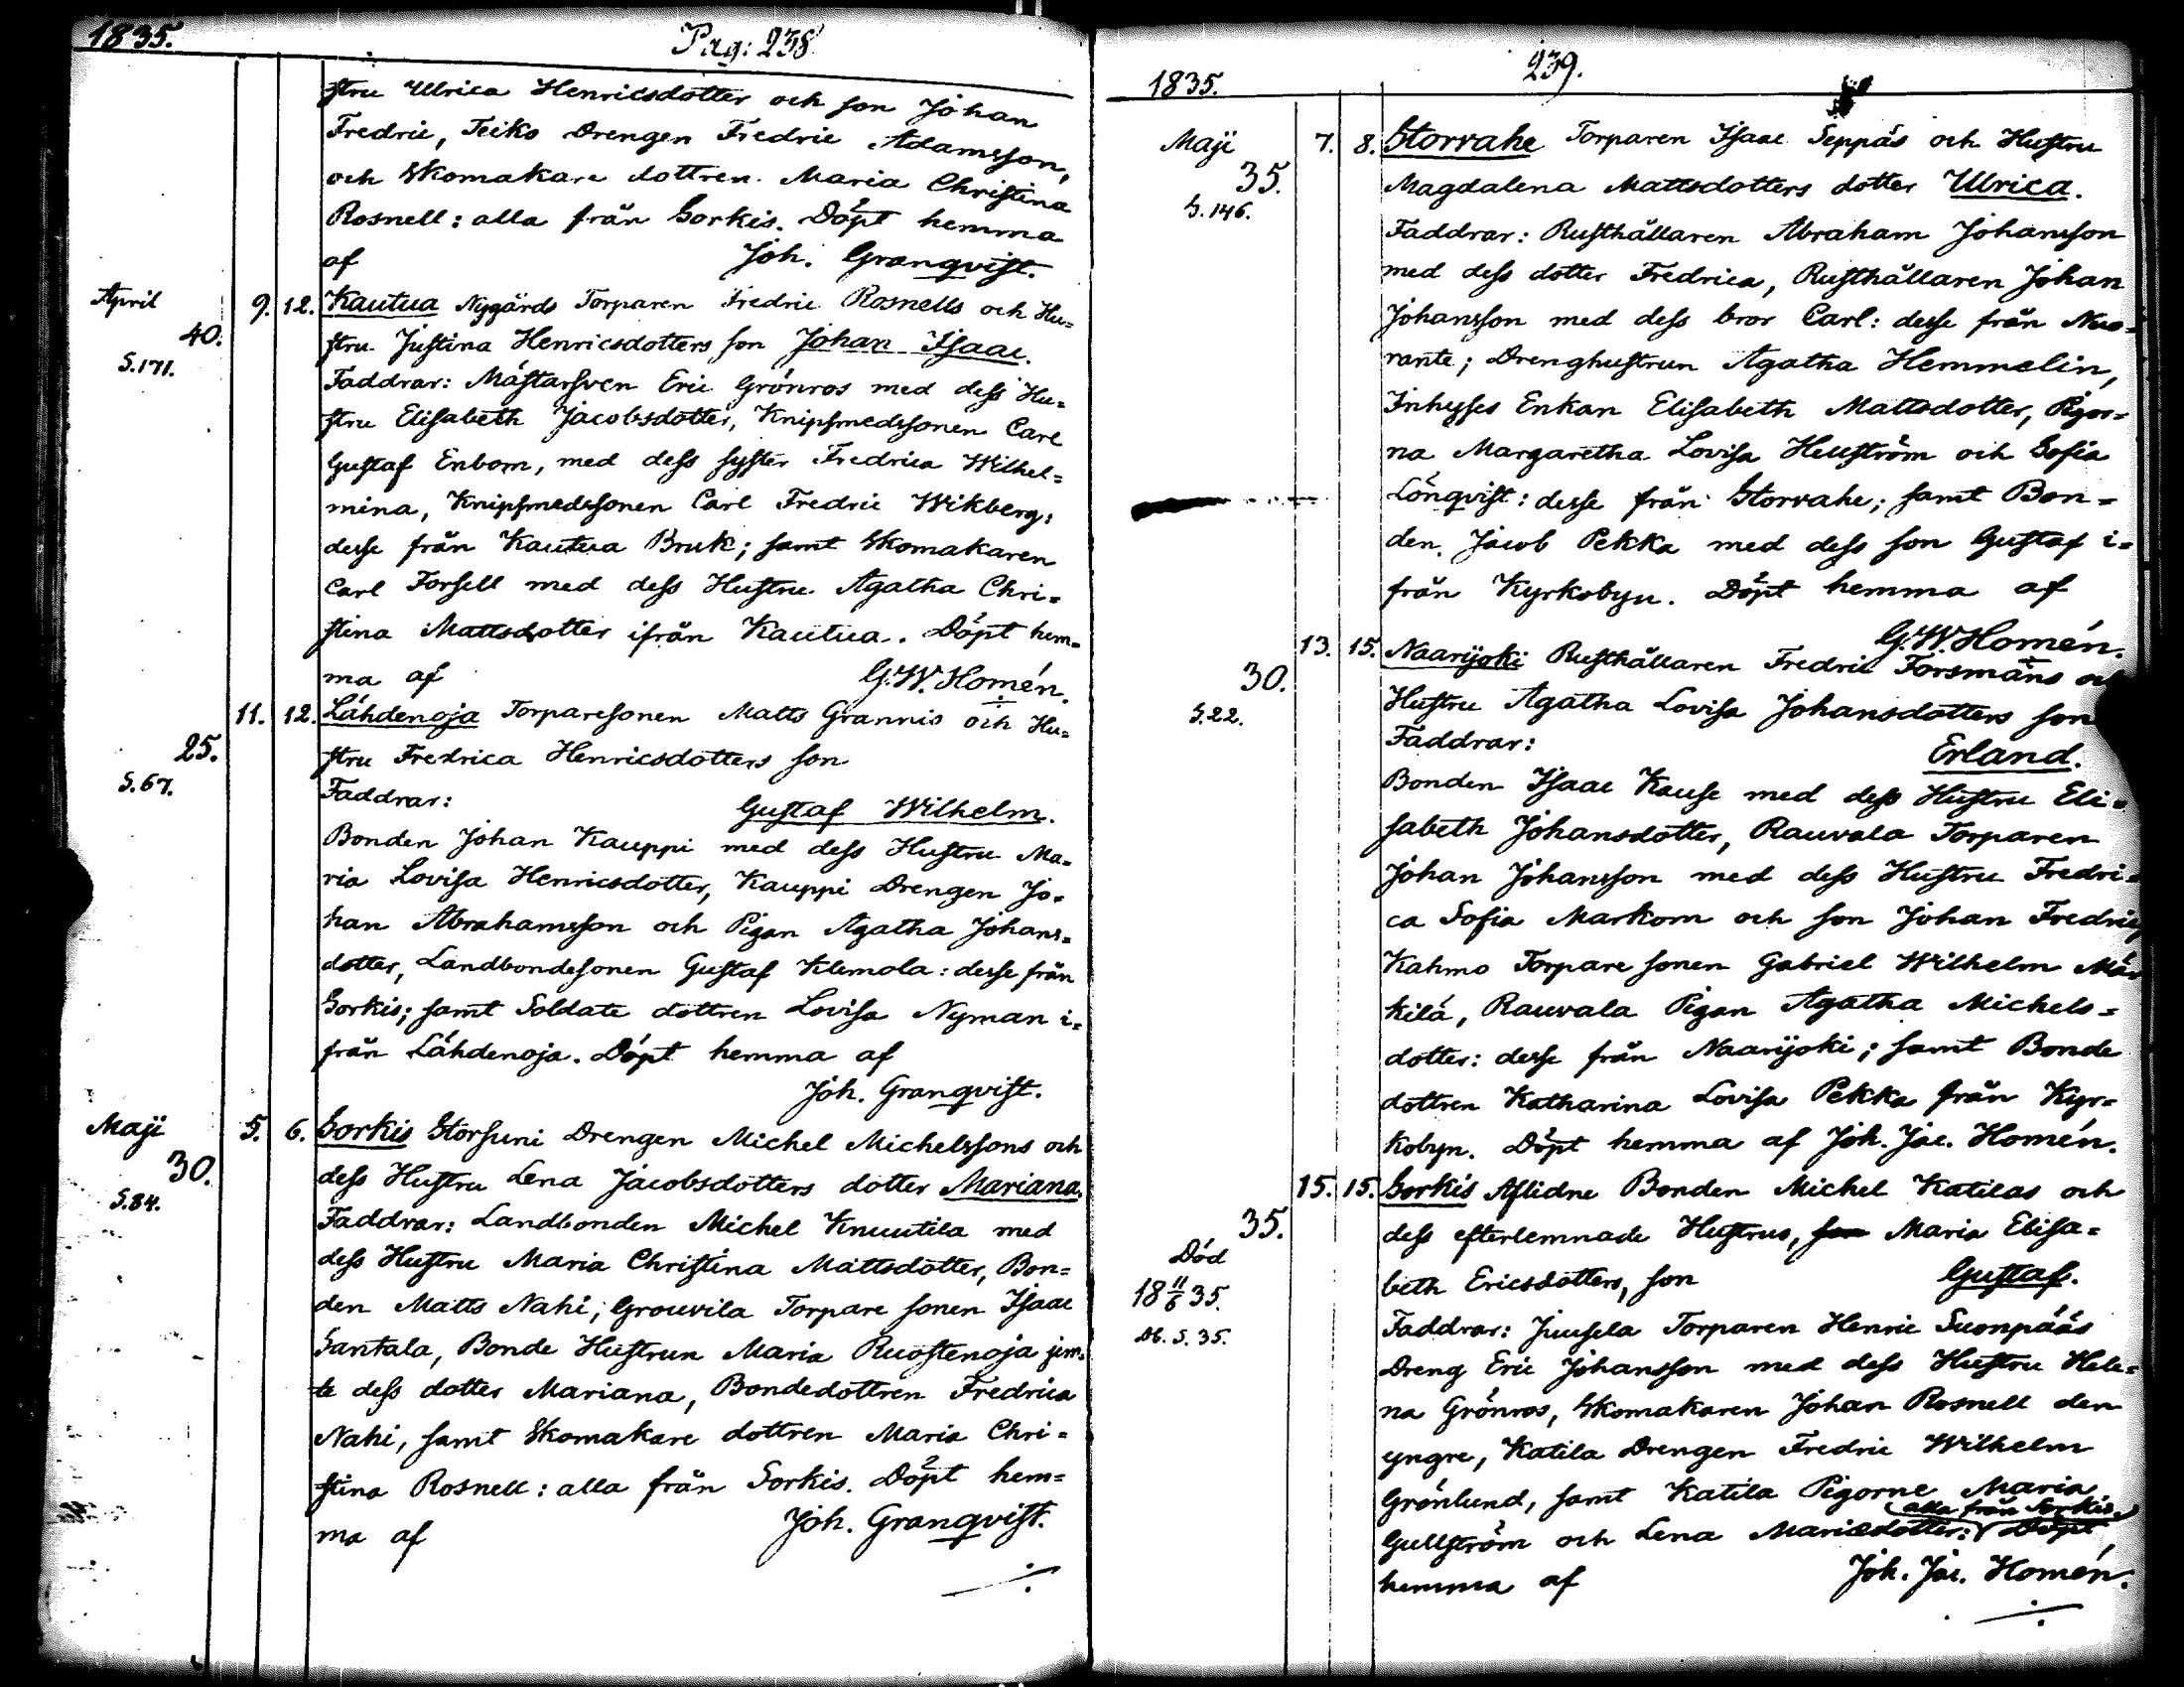 1835.
Pag: 238
stru Ulrica Henricsdotter och son Johan
Fredric, Teiko Drengen Fredric Adamsson,
och Skomakare dottren Maria Christina
Rosnell: alla från Sorkis. Döpt hemma
af Joh. Granqvist.
April 9. 12. Kautua Nygårds Torparen Fredric Rosnells och Hu=
40. stru Justina Henricsdotters son Johan Isaac.
S.171.
Faddrar: Mästarsven Eric Grönros med dess Hu=
stru Elisabeth Jacobsdotter, Knipsmedssonen Carl
Gustaf Enbom, med dess syster Fredrica Wilhel=
mina, Knipsmedssonen Carl Fredric Wikberg:
desse från Kautua Bruk; samt Skomakaren
Carl Forsell med dess Hustru Agatha Chri=
stina Mattsdotter ifrån Kautua. Döpt hem=
ma af G.W. Homén.
11. 12. Lähdenoja Torparesonen Matts Grannis och Hu=
25. stru Fredrica Henricsdotters son
S.67.
Faddrar: Gustaf Wilhelm.
Bonden Johan Kauppi med dess Hustru Ma=
ria Lovisa Henricsdotter, Kauppi Drengen Jo=
han Abrahamsson och Pigan Agatha Johans=
dotter, Landbondesonen Gustaf Klemola: desse från
Sorkis; samt Soldate dottren Lovisa Nyman i=
från Lähdenoja. Döpt hemma af
Joh. Granqvist.
Maji 5. 6. Sorkis Storsuni Drengen Michel Michelssons och
30. dess Hustru Lena Jacobsdotters dotter Mariana.
S.84.
Faddrar: Landbonden Michel Knuutila med
dess Hustru Maria Christina Mattsdotter, Bon=
den Matts Nahi, Grouvila Torpare sonen Isaac
Santala, Bonde Hustrun Maria Ruostenoja jem=
te dess dotter Mariana, Bondedottren Fredrica
Nahi, samt Skomakare dottren Maria Chri=
stina Rosnell: alla från Sorkis. Döpt hem=
ma af Joh. Granqvist.
1835.
239.
Maji 7. 8. Storrahe Torparen Isaac Seppäs och Hustru
35. Magdalena Mattsdotters dotter Ulrica.
S.146.
Faddrar: Rusthållaren Abraham Johansson
med dess dotter Fredrica, Rusthållaren Johan
Johansson med dess bror Carl: desse från Nuo=
rante; Drenghustrun Agatha Hemmelin,
Inhyses Enkan Elisabeth Mattsdotter, Pigor=
na Margaretha Lovisa Hellström och Sofia
Lönqvist: desse från Storrahe; samt Bon=
den Jacob Pekka med dess son Gustaf i=
från Kyrkobyn. Döpt hemma af
G.W. Homén.
13. 15. Naarijoki Rusthållaren Fredric Forsmans och
30. Hustru Agatha Lovisa Johansdotters son
S.22.
Faddrar: Erland.
Bonden Isaac Kause med dess Hustru Eli=
sabeth Johansdotter, Rauvala Torparen
Johan Johansson med dess Hustru Fredri=
ca Sofia Markom och son Johan Fredric,
Kahmo Torpare sonen Gabriel Wilhelm Mär
kilä, Rauvala Pigan Agatha Michels=
dotter: desse från Naarijoki; samt Bonde
dottren Katharina Lovisa Pekka från Kyr=
kobyn. Döpt hemma af Joh. Jac. Homén.
15. 15. Sorkis Aflidne Bonden Michel Katilas och
35. dess efterlemnade Hustrus, son Maria Elisa=
Död
beth Ericsdotters, son Gustaf.
18 11/6 35.
Db. S. 35.
Faddrar: Juusela Torparen Henric Suonpääs
Dreng Eric Johansson med dess Hustru Hele=
na Grönros, Skomakaren Johan Rosnell den
yngre, Katila Drengen Fredric Wilhelm
Grönlund, samt Katila Pigorne Maria
alla från Sorkis.
Gullström och Lena Mariædotter: Döpt
hemma af Joh. Jac. Homén.